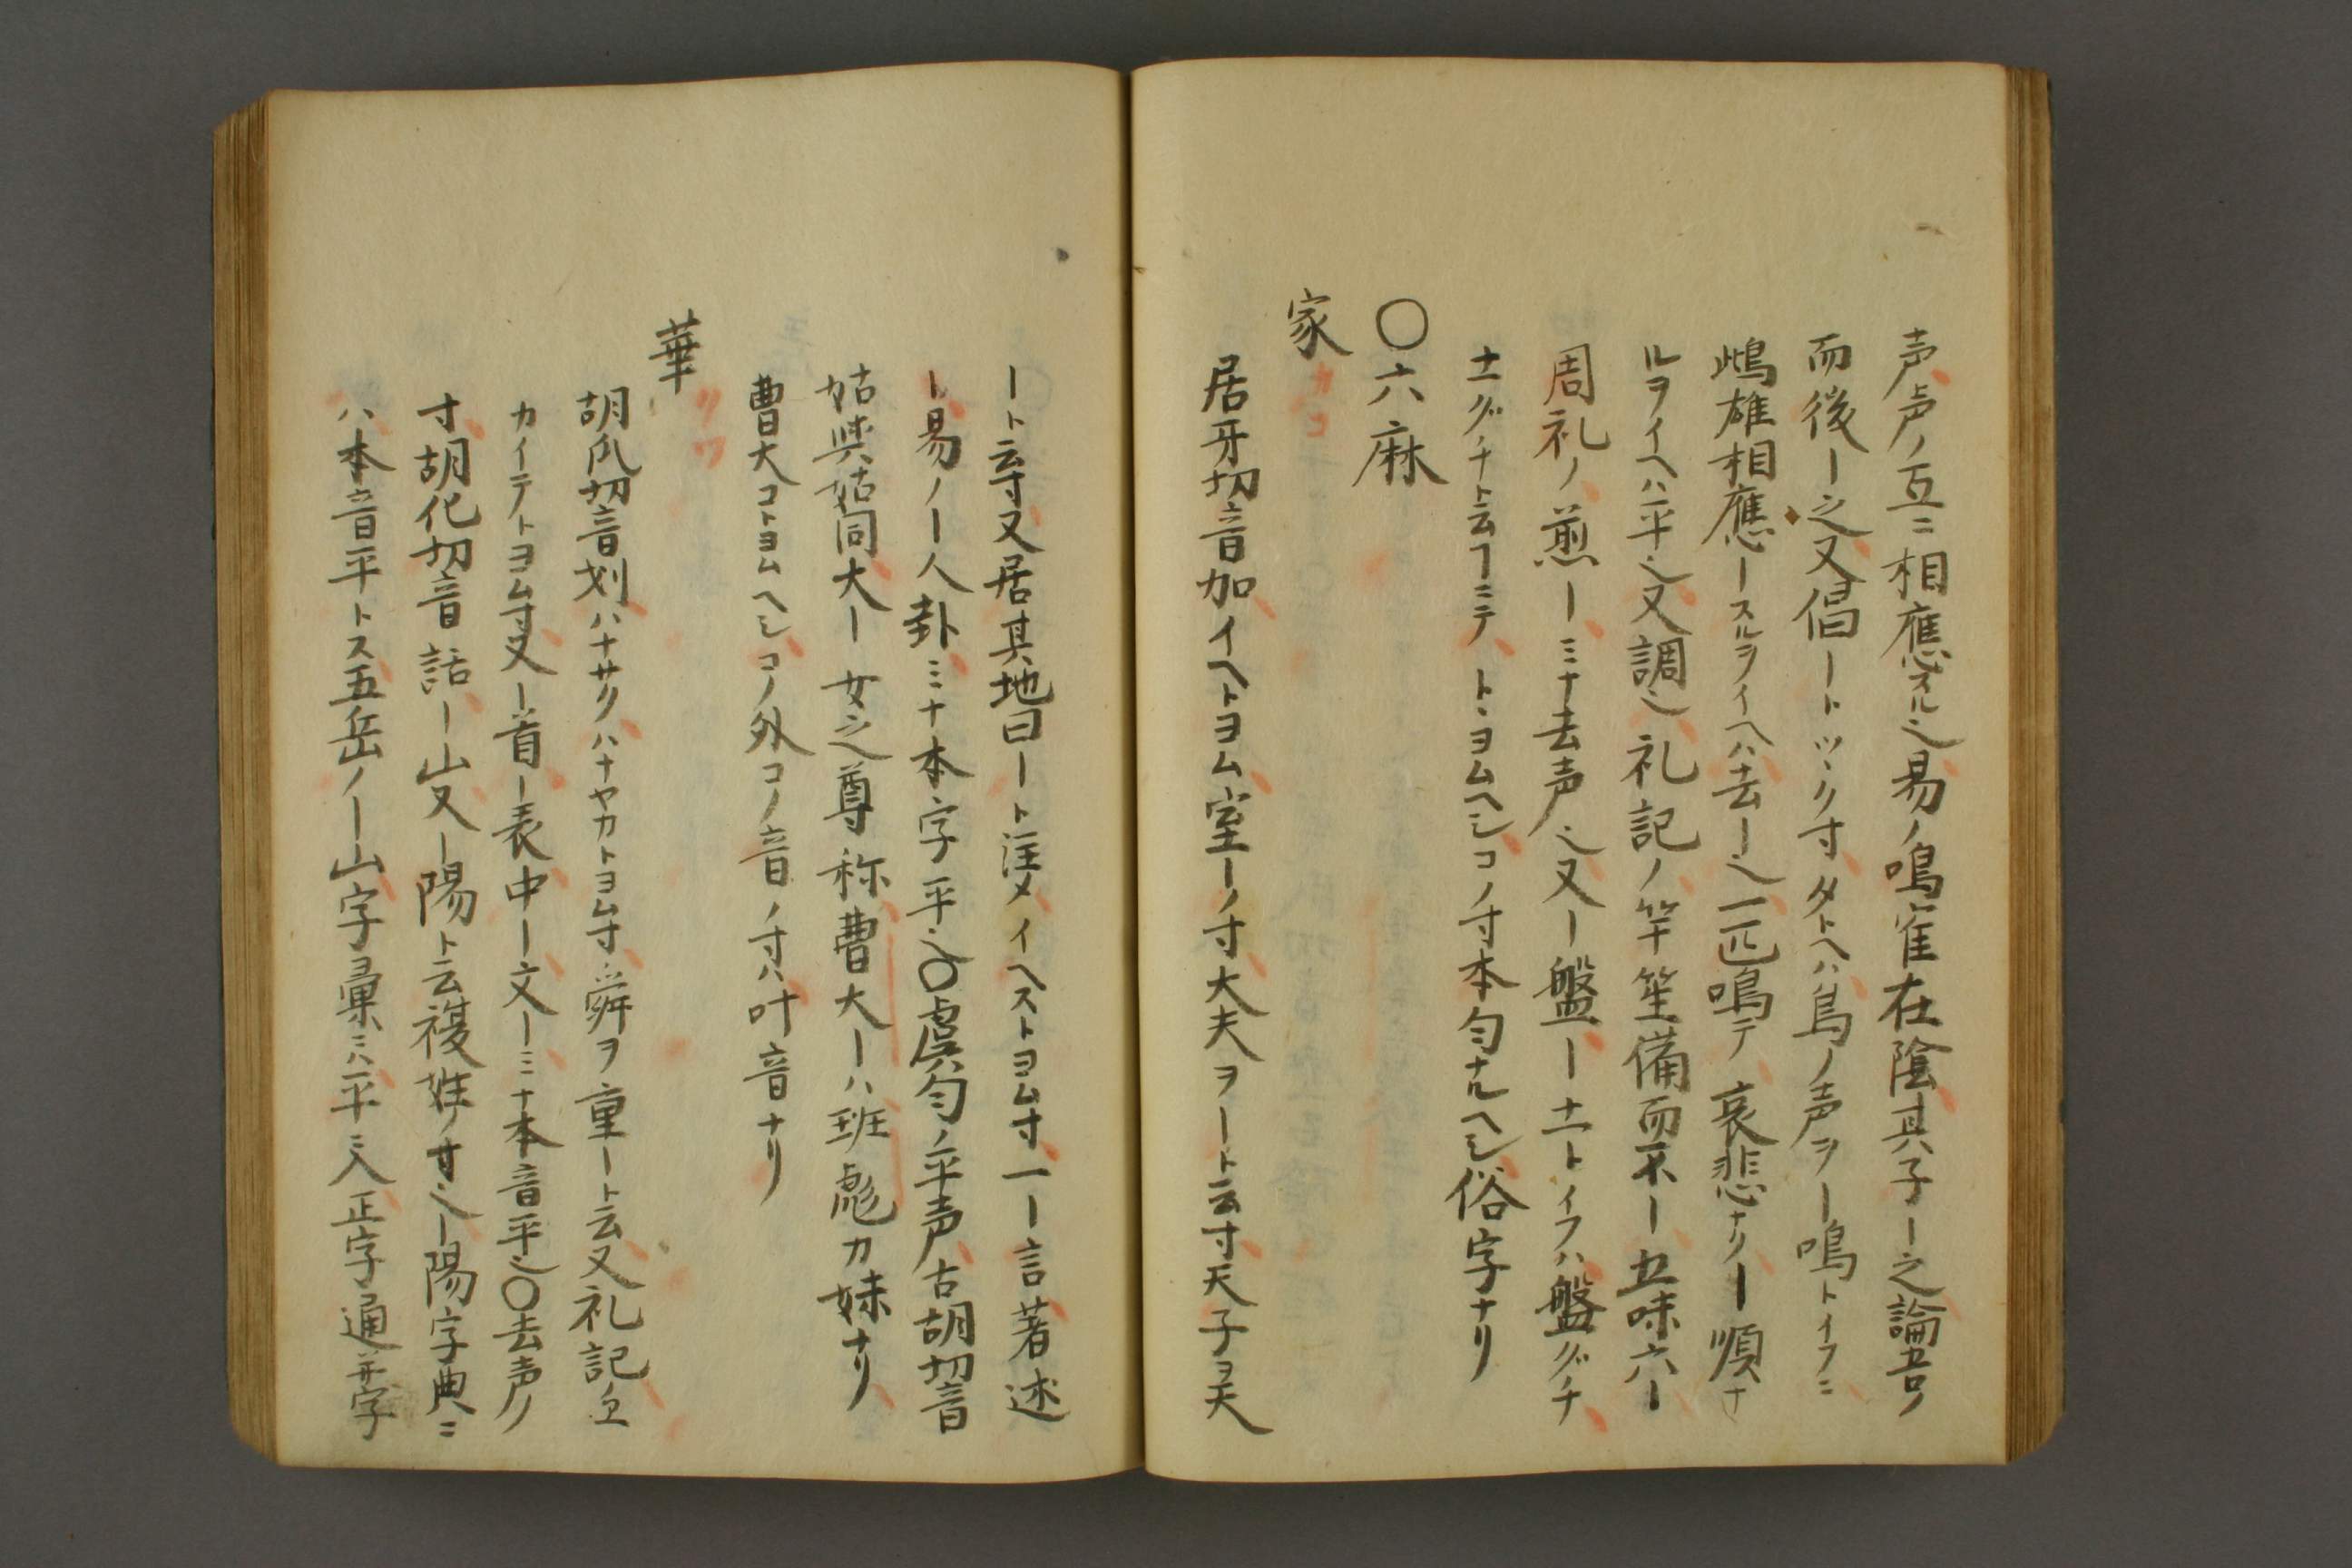 声声ノ互ニ相應スル之易ノ鳴隺在陰其子ー之論吾ノ
而後ー之又倡ートツヾク寸タトヘハ鳥ノ声ヲー鳴トイフニ
鴟雄相應ースルヲイヘハ去ー之一匹鳴テ哀悲ナリー順ナ
ルヲイヘハ平之又調之礼記ノ竿笙備而不ー五味六ー
周礼ノ煎ーミナ去声之又ー盤ー十一トイフハ盤グチ
十一グチト云ヿニテトヽヨムヘシコノ寸本匀ナルヘシ俗字ナリ
〇六麻
家
カコ
居牙切音加イヘトヨム室ーノ寸大夫ヲート云寸天子ヲ天
ート云寸又居其地曰ート注メイヘストヨム寸一ー言著述
ー易ノー人卦ミナ本字平之〇虞匀ノ平声古胡切音
姑與姑同大ー女之尊称曹大ーハ班彪カ妹ナリ
曹大コトヨムヘシコノ外コノ音ノ寸ハ叶音ナリ
華
クワ
胡瓜切音划ハナサクハナヤカトヨム寸舜ヲ重ート云又礼記
カイテトヨム寸又ー首ー表中ー文ーミナ本音平之〇去声ノ
寸胡化切音話ー山又ー陽ト云複姓ノ寸之ー陽字典ニ
ハ本音平トス五岳ノー山字彙ニハ平ニ入正字通并字